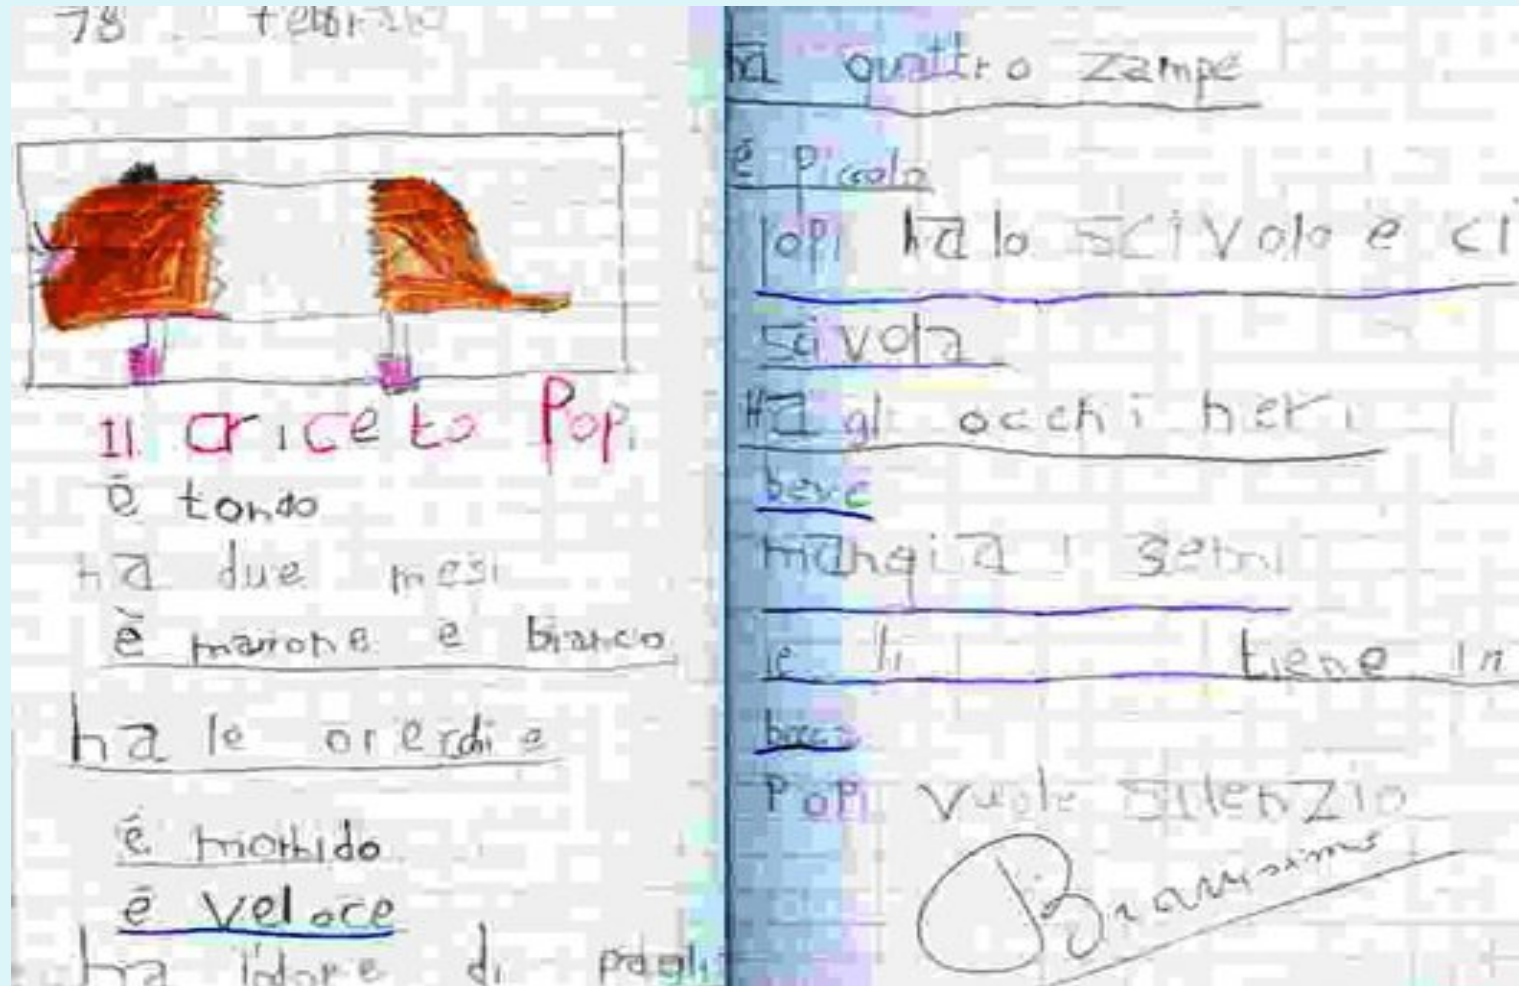 18 febbraio
Il criceto Popi
è tondo
ha due mesi
è marrone e bianco
ha le orecchie
è morbido
è veloce
ha di
ha quattro zampe
è Piccolo
Popi ha lo scivolo e ci
scivola
Ha gli occhi neri
beve
mangia i semi
e li tiene in
bocca
Popi vuole silenzio